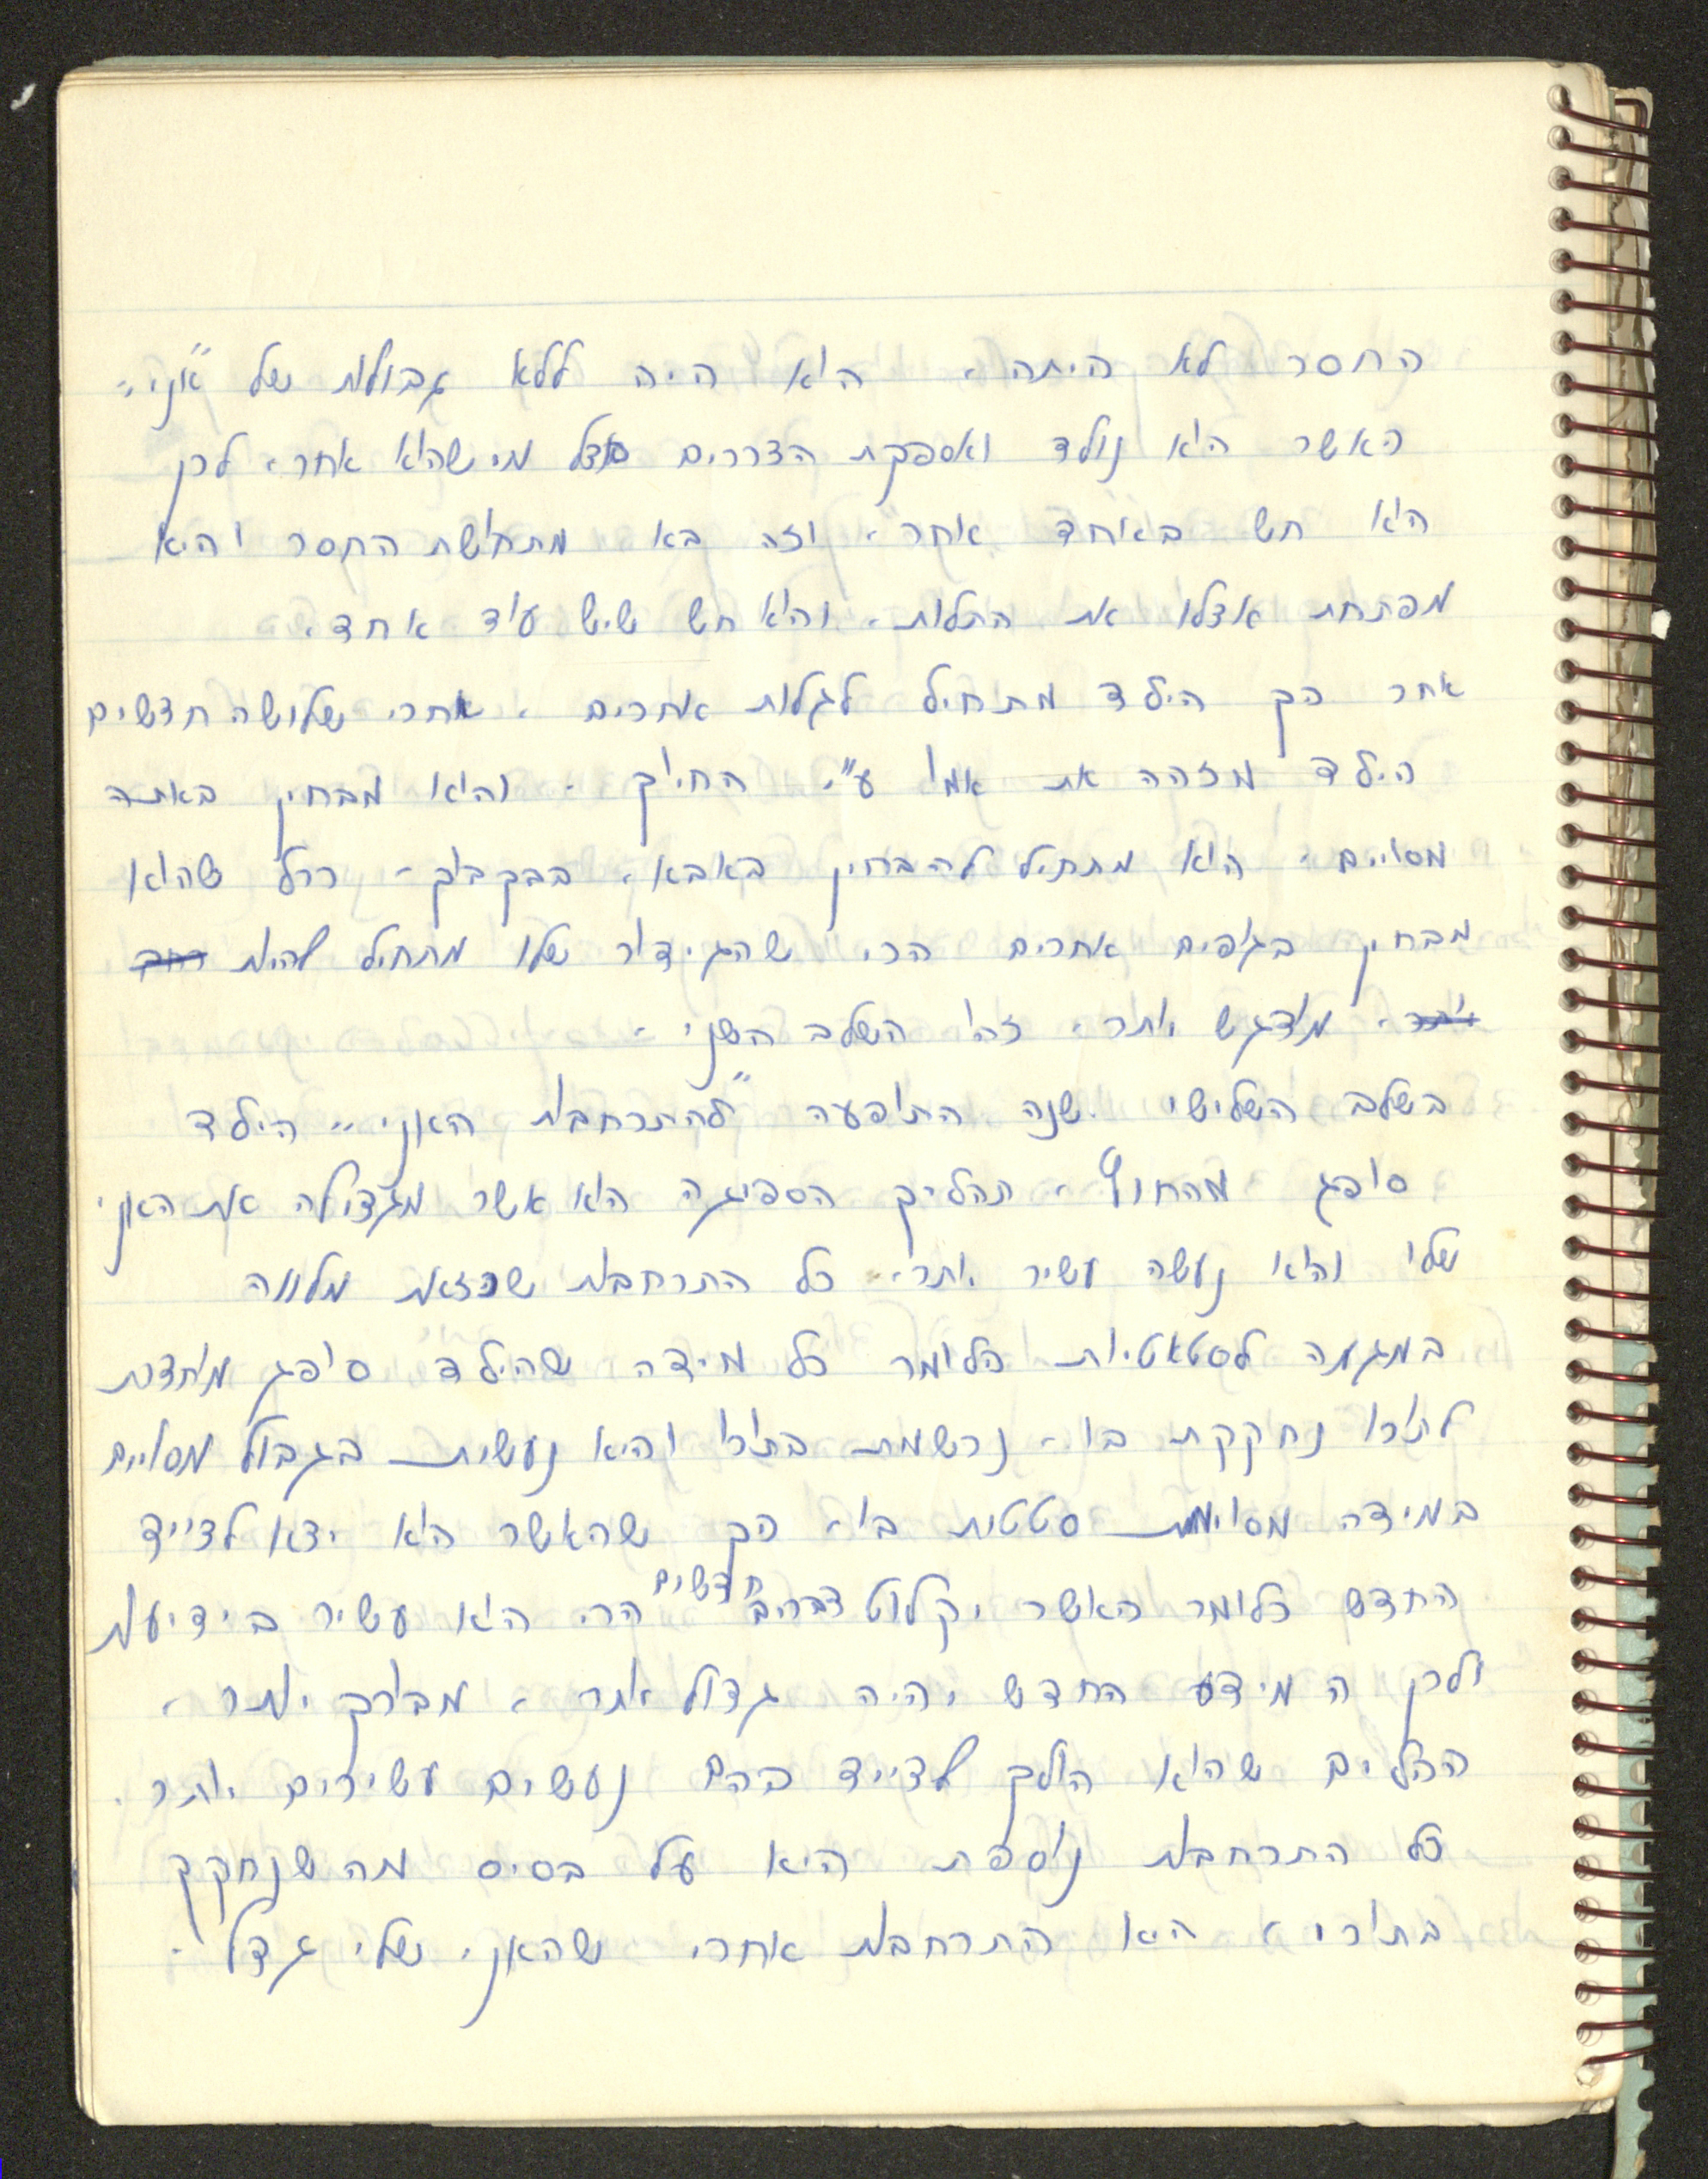 החסר לא היתה. הוא היה ללא גבולות של "אני"
כאשר הוא נולד ואספקת הצרכים אצל מישהו אחר. לכן
הוא חש ב"אחד אחר". וזה בא מתחושת החסר והיא
מפתחת אצלו את התלות. והוא חש שיש עוד אחד.
אחר כך הילד מתחיל לגלות אחרים. אחרי שלושה חדשים
הילד מזהה את אמו ע"י החיוך. והוא מבחין באתה
מסויים. הוא מתחיל להבחין באבא. בבקבוק. ככל שהוא
מבחין בגופים אחרים הרי שהגידור שלו מתחיל להיות
יותר. מודגש יותר. זהו השלב השני.
בשלב השלישי ישנה התופעה "להתרחבות האני". הילד
סופג מהחוץ. תהליך הספיגה הוא אשר מגדילה את האני
שלו והוא נעשה עשיר יותר. כל התרחבות שכזאת מלווה
במגמה לסטאטיות כלומר כל מידה שהילד סופג מוחדרת
לתוכו נחקקת בו. נרשמת בתוכו והיא נעשית בגבול מסויים
במידה מסויימת סטטית בו. כך שכאשר הוא יצא לצייד
החדש כלומר כאשר יקלוט דברים חדשים הרי הוא עשיר בידיעות
ולכן המידע החדש יהיה גדול יותר. מבורך יותר.
הכלים שהוא הולך לצייד בהם נעשים עשירים יותר.
כל התרחבות נוספת היא על בסיס מה שנחקק
בתוכו. היא התרחבות אחרי שהאני שלי גדל.